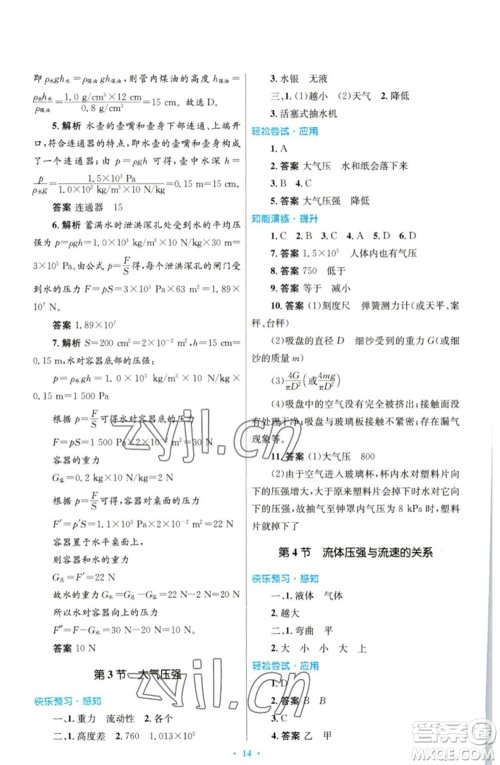 即 ρ水gh水=ρ煤油gh煤油,则管内煤油的高度 h煤油=
ρ水h水/ρ煤油=1.0 g/cm³×12 cm/0.8 g/cm³=15 cm。故选 D。
5. 解析 水壶的壶嘴和壶身下部连通、上端开
口,符合连通器的特点;壶嘴和壶身中水面应该等
高;由 p=ρgh 可知,壶中水深至少为 h=
p/ρ水g=1.5×10³ Pa/1.0×10³ kg/m³×10 N/kg=0.15 m=15 cm。
答案 连通器 15
6. 解析 蓄满水时泄洪深孔处受水的平均压
强为 p=ρgh=1.0×10³ kg/m³×10 N/kg×90 m=9×
10⁵ Pa。由公式 p=F/S可得,每个泄洪深孔的闸门受
到水的压力为 F=pS=9×10⁵ Pa×3 m×7 m=1.89×
10⁷ N。
答案 1.89×10⁷
7. 解析 S=200 cm²=2×10⁻² m²,h=15 cm=
0.15 m,水对容器底部的压强:
p=ρgh=1.0×10³ kg/m³×10 N/kg×
0.15 m=1 500 Pa
根据 p=F/S可得水对容器底的压力:
F=pS=1 500 Pa×2×10⁻² m²=30 N
容器的重力:
G容=0.2 kg×10 N/kg=2 N
根据 p=F/S可得,容器对水平桌面的压力:
F′=p′S=1.1×10³ Pa×2×10⁻² m²=22 N
因容器置于水平桌面上,
容器底面受到的压力等于水和容器的总重,即
G总=F′=22 N
故水的重力
G水=G总-G容=22 N-2 N=20 N
所以水对容器顶部的压力
F″=F-G水=30 N-20 N=10 N
答案 10 N
第 3 节 大气压强
快乐预习·感知
一、1. 重力 流动性 2. 各个
二、1. 高度差 2. 760 1.013×10⁵
3. 水银 无液
三、1. (1)越小 (2)天气 2. 降低
3. 活塞式抽水机
轻松尝试·应用
1. A
2. 答案 大气压 水和纸会落下来
3. B 4. C
5. 答案 大气压强 降低
知能演练·提升
1. C 2. B 3. A 4. D 5. B 6. C
7. 答案 1.5×10⁵ 人体内也有气压
8. 答案 750 低于
9. 答案 低 减小
10. 答案 (1)刻度尺 弹簧测力计(或天平、
案秤、台秤)
(2)吸盘的直径 D 细沙受到的重力 G(或细
沙的质量 m)
(3)4G/πD²(或4mg/πD²)
(4)吸盘中的空气没有完全被挤出;接触面没
有完全接触;接触面不清洁、不平滑;存在漏气
现象等。
11. 答案 (1)大气压 800
(2)由于空气进入玻璃杯,杯内水对塑料片向下
的压强增大,大于原来塑料片下空气对它向上的压
强,故抽气至钟罩内气压不为 8 kPa 时,塑料
片就掉下了
第 4 节 流体压强与流速的关系
快乐预习·感知
一、1. 液体 气体
2. 越大
二、1. 弯曲 平
2. 小 大
轻松尝试·应用
1. D
2. 答案 B B
3. D
4. 答案 乙 甲
14
zyjl.cn
zyjl.cn
答案圈